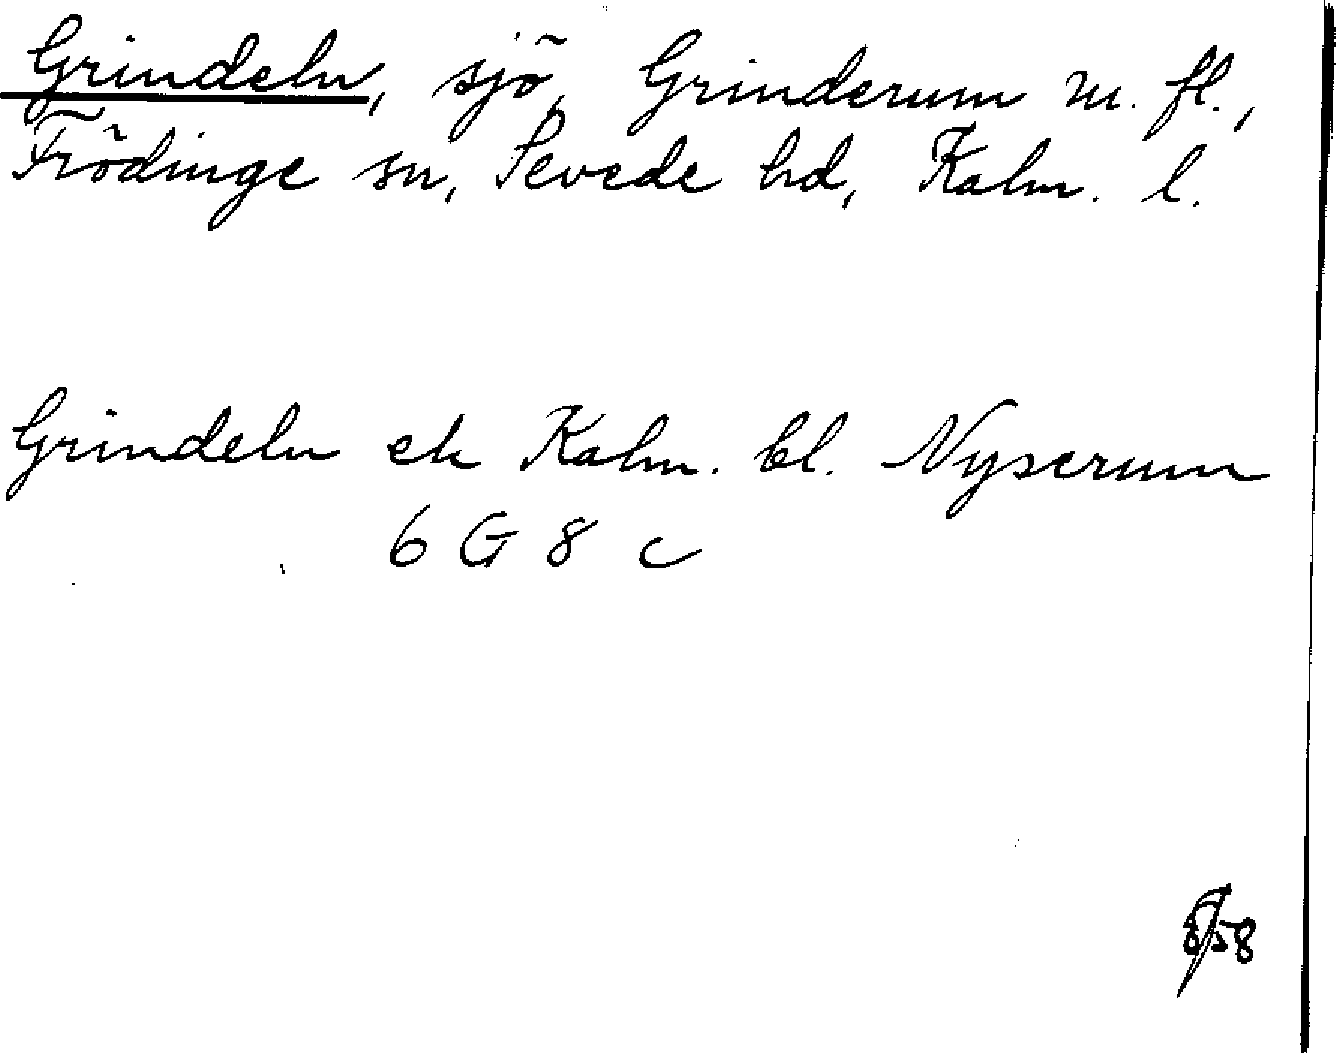 Grindeln, sjö, Grinderum m. fl.,
Frödinge sn, Sevede hd, Kalm. l.
Grindeln ek Kalm. bl. Nyserum
6 G 8 c